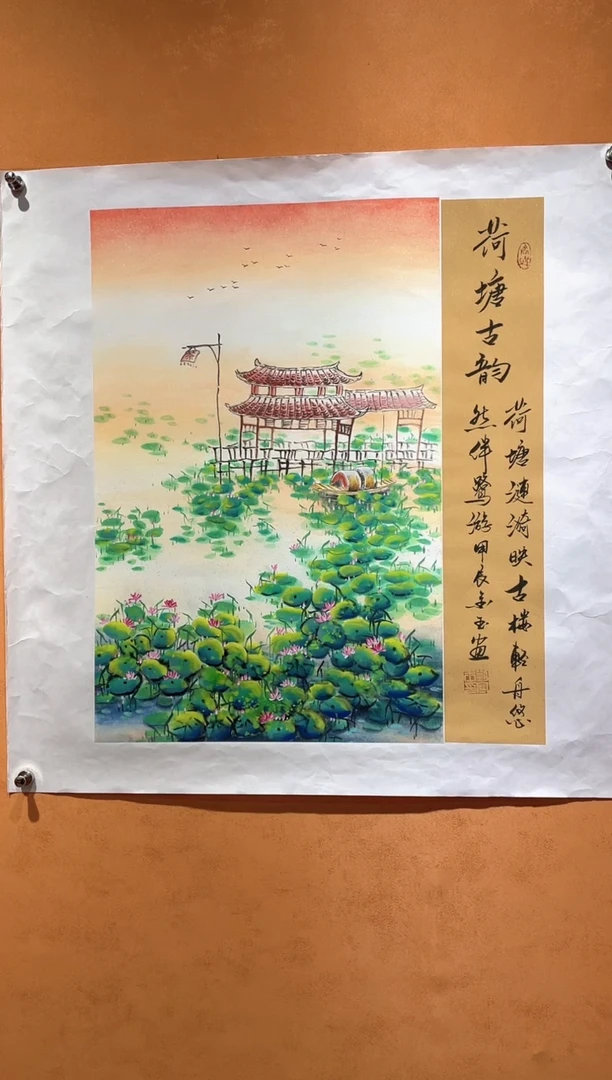 荷塘古韵
荷塘涟漪映古楼轻舟悠
然伴鹭游甲辰玉画